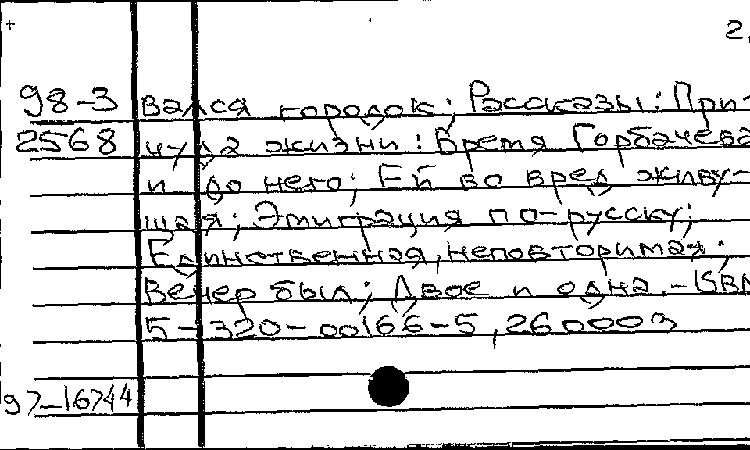 2.
98-3 вался городок; Рассказы: При-
2568 чуда жизни: Время Горбачева
и до него; Ей во вред живу-
щая; Эмиграция по-русску;
Единственная, неповторимая;
Вечер был; Двое и одна.-ISBN
5-320-00166-5, 260000з
97-16744